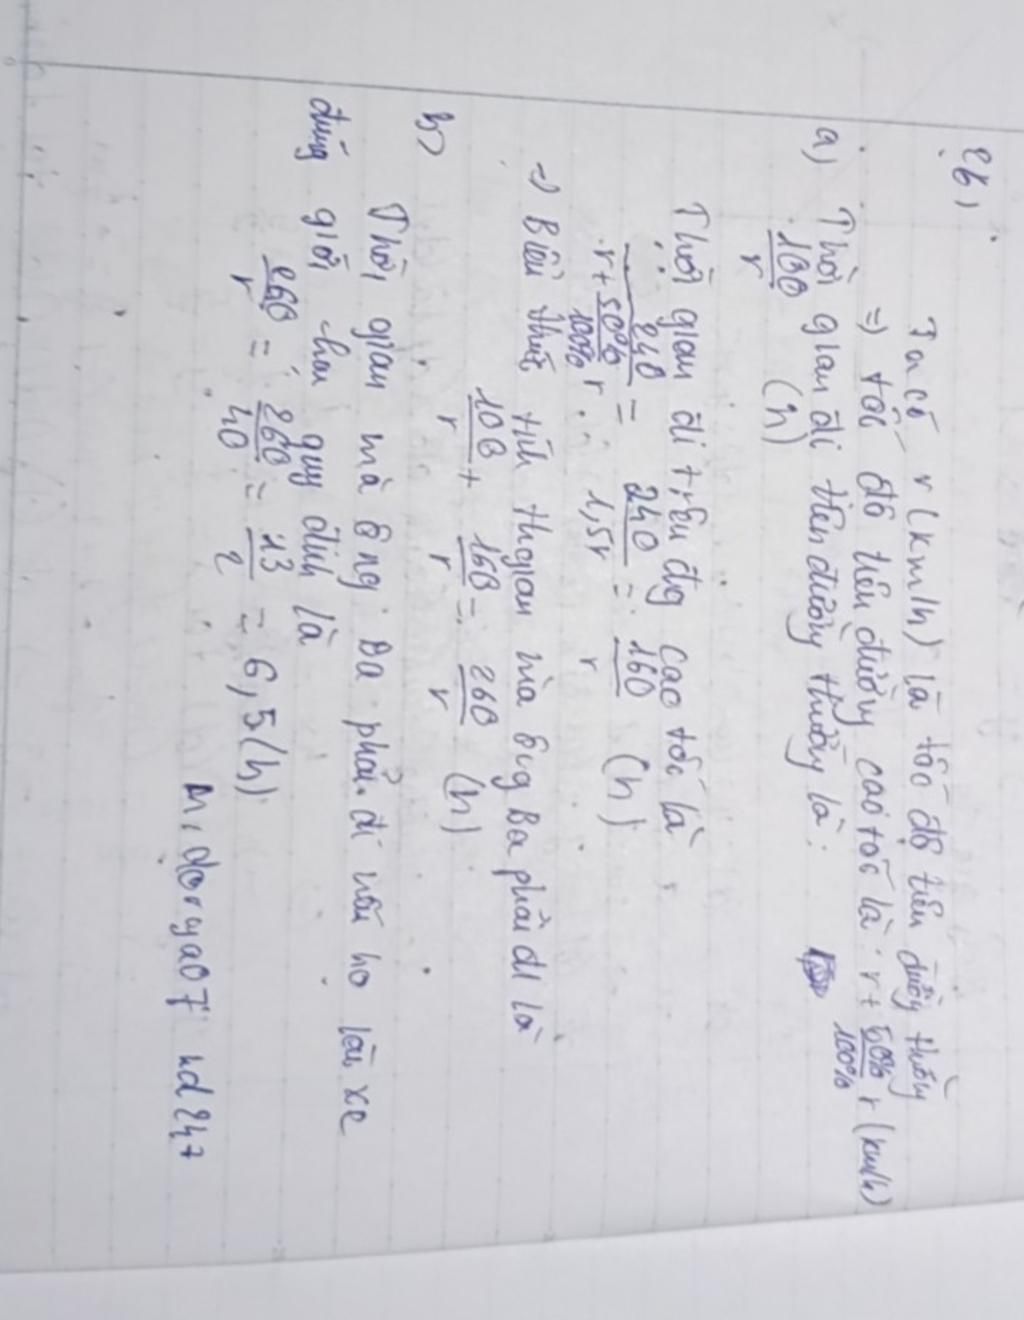 26)
Ta có r (km/h) là tốc độ trên đường thường
=) tốc độ trên đường cao tốc là: r + 50%/100% r (km/h)
a) Thời gian đi trên đường thường là:
100/r (h)
Thời gian đi trên đg cao tốc là
240/(r + 50%/100% r) = 240/1,5r = 160/r (h)
=) Biểu thức tính thgian mà ông Ba phải đi là
100/r + 160/r = 260/r (h)
b) Thời gian mà ông Ba phải đi nếu ho lái xe
đúng giới hạn quy định là
260/r = 260/40 = 13/2 = 6,5 (h)
midorya07 hd247